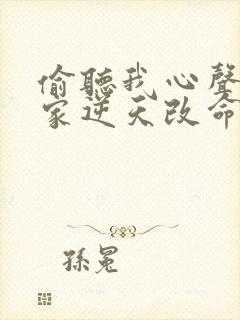 偷聽我心聲
家逆天改命
孫冕